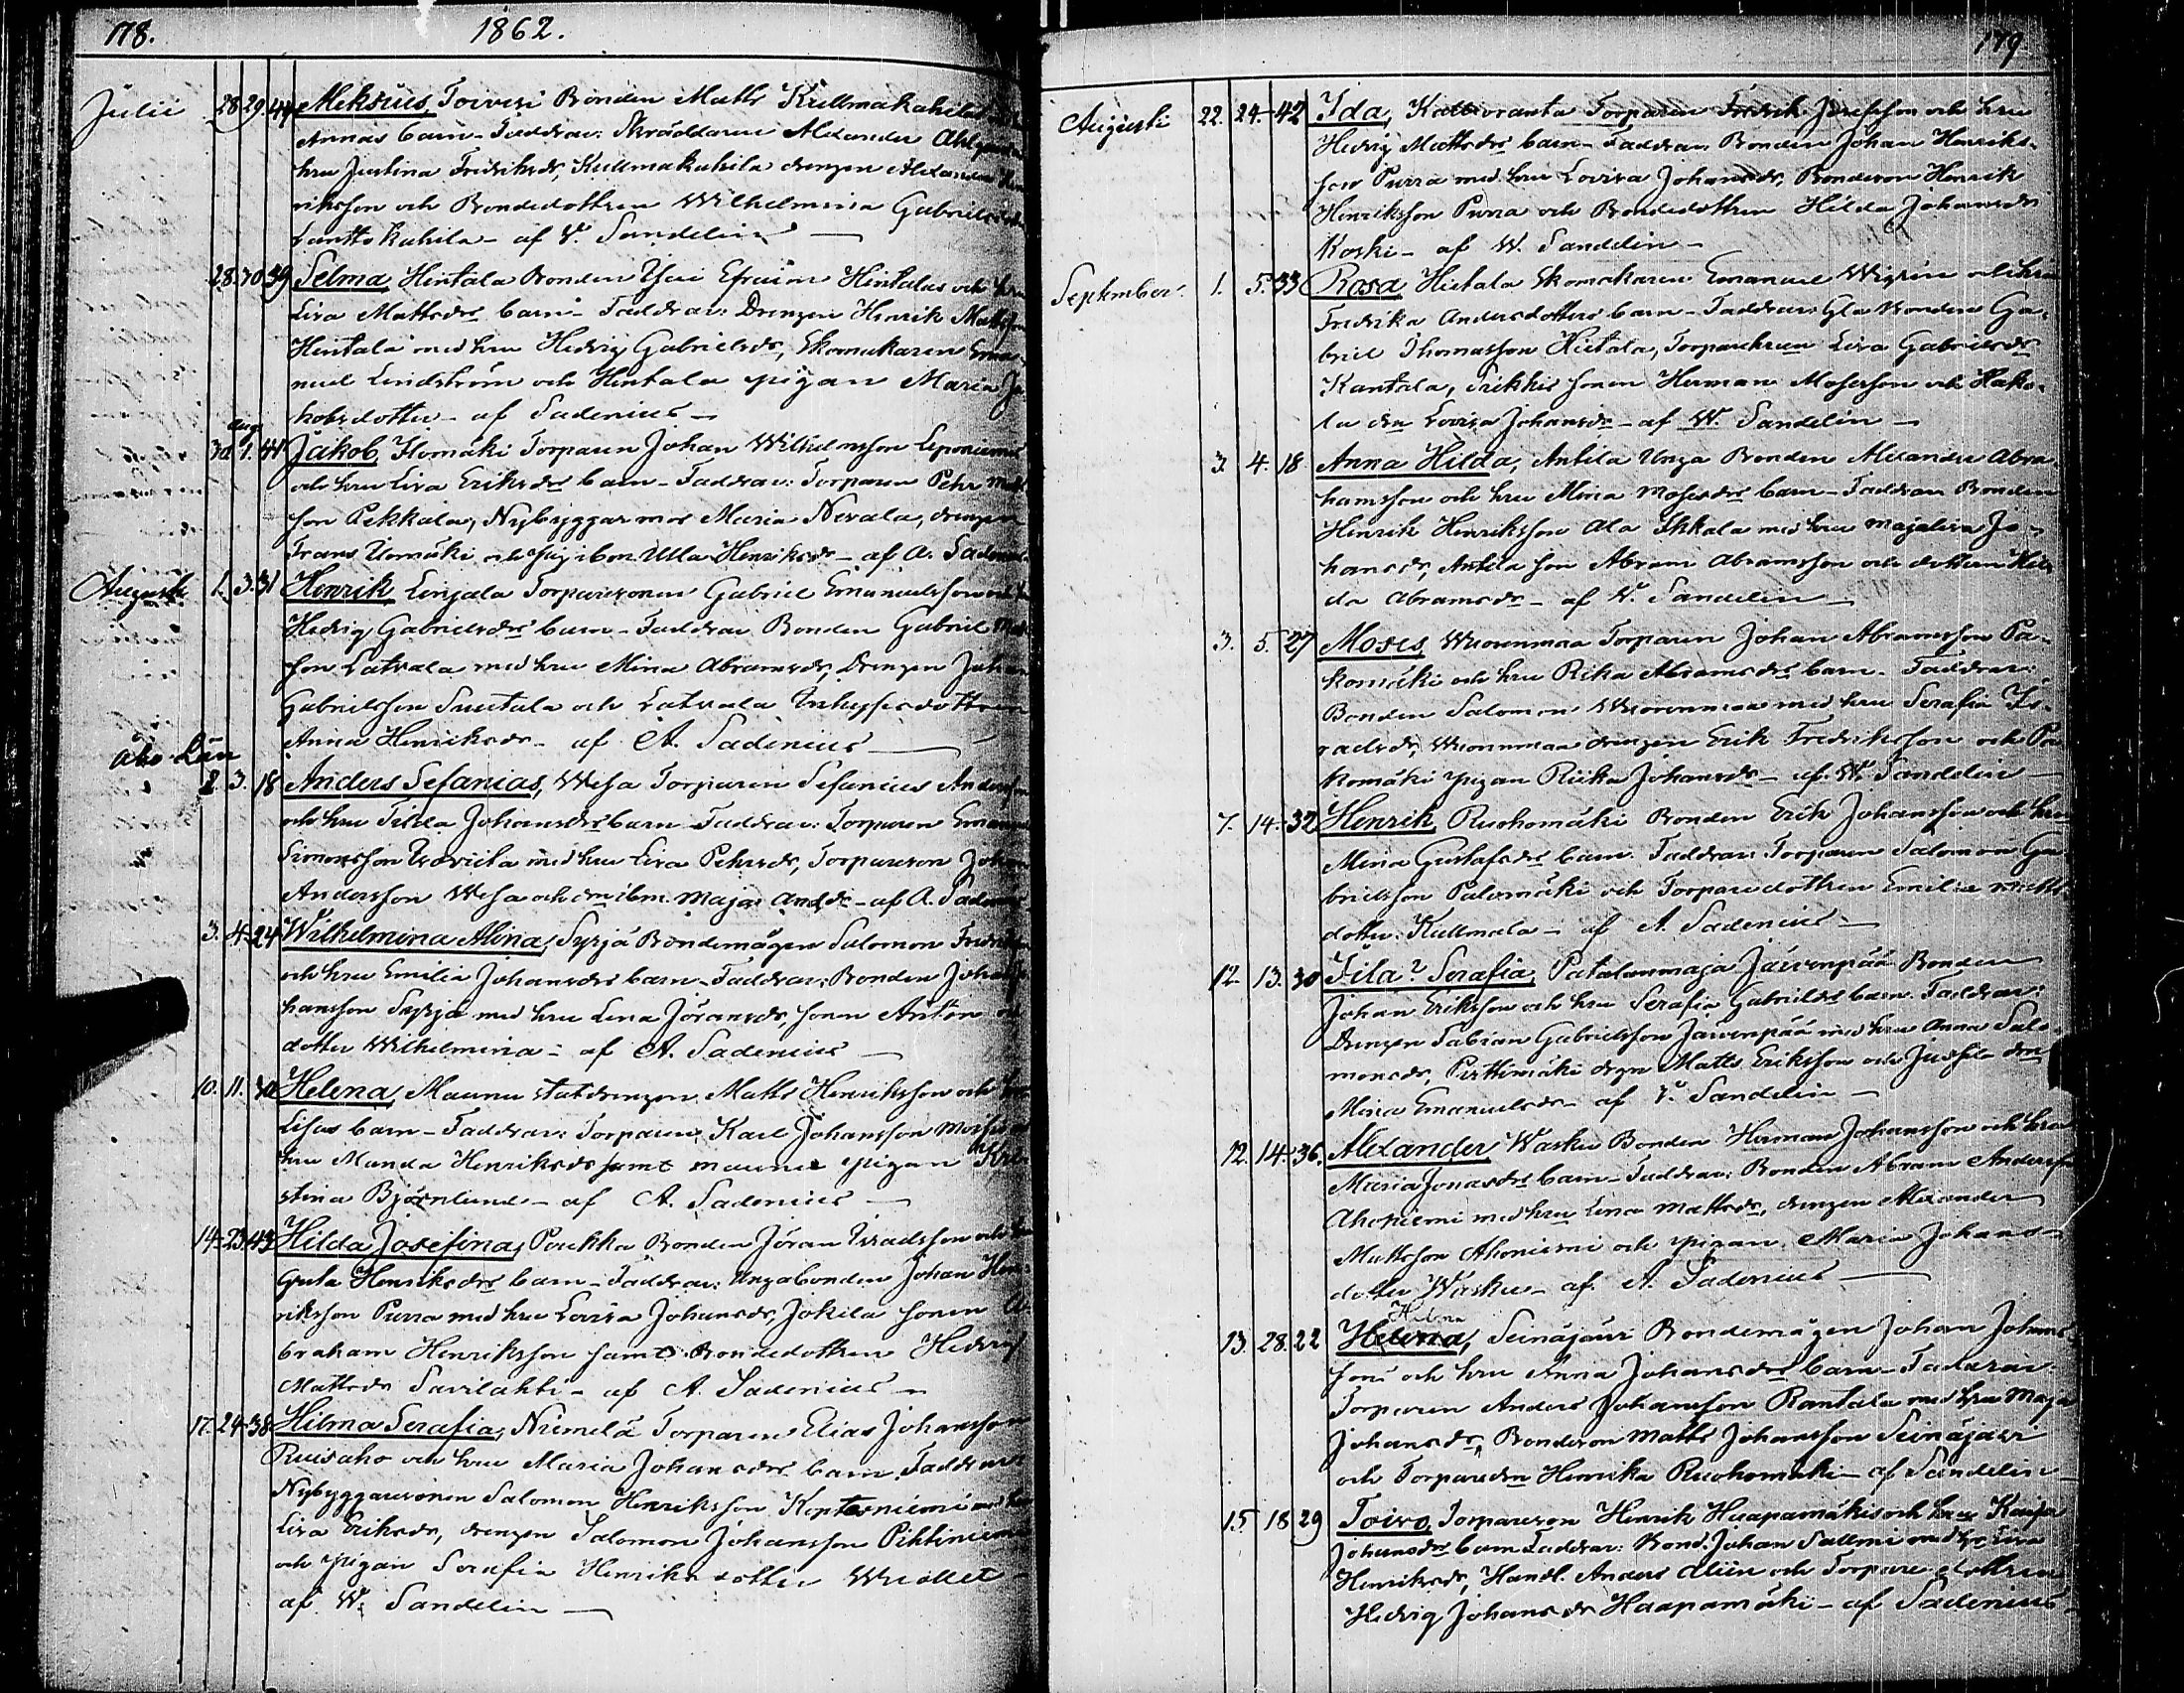 178. 1862.
Julii 28. 29. 44 Aleksius, Toivesi Bonden Matts Kullmakahilas
Annas barn – Faddrar: Skräddaren Alexander Ahlgren
hru Justina Fredriksdr, Kullmakahila drengen Alexander Hen
riksson och Bondedottren Wilhelmina Gabrielsdr
Lanttokahila – af V. Sandelin
28. 30. 39 Selma, Hintala Bonden Efraim Hintalas och hru
Lisa Mattsdrs barn – Faddrar: Drengen Henrik Mattsson
Hintala med hru Hedvig Gabrielsdr, Skomakaren Ema
nuel Lindström och Hintala pigan Maria Ja
kobsdotter – af Sadenius
Aug
30. 1. 41 Jakob, Ilomäki Torparen Johan Wilhelmsson Leponiemis
och hru Lisa Eriksdrs barn – Faddrar: Torparen Pehr Matts
son Pekkala, Nybyggar mor Maria Nevala, drengen
Frans Ilomäki och pig. ibm Ulla Henriksdr – af A. Sadenius
Augusti 1. 3. 31 Henrik, Lingala Torparesonen Gabriel Emanuelsson och hru
Hedvig Gabrielsdrs barn – Faddrar Bonden Gabriel Matts
son Latvala med hru Mina Abramsdr, Drengen Johan
Gabrielsson Sautala och Latvala Inhysesdottren
Anna Henriksdr – af A. Sadenius
Åbo Län
2. 3. 18 Anders Sefanias, Wesa Torparen Sefanias Andersson
och hru Tilda Johansdrs barn Faddrar: Torparen Emanuel
Simonsson med hru Lisa Pehrsdr, Torpareson Johan
Andersson Wesa och drn ibm. Maja Andsdr – af A. Sadenius
3. 4. 24 Wilhelmina Alina, Syrjä Bondemågen Salomon Fredriksson
och hru Emilia Johansdrs barn – Faddrar: Bonden Johan Jo
hansson Syrjä med hru Lena Jöransdr, sonen Anton och
dotter Wilhelmina – af A. Sadenius
10. 11. 40 Helena, Maunu statdrengen Matts Henriksson och hru
Lisas barn – Faddrar: Torparen Karl Johansson Moisio
hru Manda Henriksdr samt Maunu pigan Kri
stina Björnlund – af A. Sadenius
14. 23. 43 Hilda Josefina, Poukka Bonden Jöran Israelsson och hru
Greta Henriksdrs barn – Faddrar: Ungabonden Johan Hen
riksson Purra med hru Lovisa Johansdr, Jokila sonen A
braham Henriksson samt Bondedottren Hedvig
Mattsdr Savilahti – af A. Sadenius
17. 24. 38 Hilma Serafia, Niemelä Torparen Elias Johansson
Ruisaho och hru Maria Johansdrs barn Faddrar
Nybyggaresonen Salomon Henriksson Kontoniemi med hru
Lisa Eriksdr, drengen Salomon Johansson Pihtiniemi
och pigan Serafia Henriksdotter Wuollet
af W. Sandelin
179
Augusti 22. 24. 42 Ida, Kallioranta Torparen Fredrik Josefsson och hru
Hedvig Mattsdrs barn – Faddrar: Bonden Johan Henriks-
son Purra med hru Lovisa Johansdr, Bondeson Henrik
Henriksson Purra och Bondedottren Hilda Johansdr
Koski – af W. Sandelin
September 1. 5. 33 Rosa, Hietala Skomakaren Emanuel Wigrén och hru
Fredrika Andersdotters barn – Faddrar: Gla Bonden Ga-
briel Thomasson Hietala, Torparehrun Lisa Gabrielsdr
Kantola, Prekkis sonen Herman Mosesson och Hako-
la drn Lovisa Johansdr – af W. Sandelin
3. 4. 18 Anna Hilda, Antila Unga Bonden Alexander Abra-
hamsson och hru Mina Mosesdrs barn – Faddrar Bonden
Henrik Henriksson Ala Ikkala med hru Majalisa Jo-
hansdr, Antila son Abram Abramsson och dottern Hil
da Abramsdr – af V. Sandelin
3. 5. 27 Moses, Wuorenmaa Torparen Johan Abramsson Pa-
komäki och hru Rika Abramsdrs barn – Faddrar:
Bonden Salomon Wuorenmaa med hru Serafia Is-
raelsdr, Wuorenmaa drengen Erik Fredriksson och Pa
komäki pigan Rieka Johansdr – af W. Sandelin
7. 14. 32 Henrik, Ruohomäki Bonden Erik Johansson och hru
Mina Gustafsdrs barn. Faddrar: Torparen Salomon Ga
brielsson Palomäki och Torparedottren Emilia Matts
dotter Kullmala – af A. Sadenius
12. 13. 30 Fila? Serafia, Patalanmaja Järvenpää Bonden
Johan Eriksson och hru Serafia Gabrielsdrs barn. Faddrar:
Drengen Fabian Gabrielsson Järvenpää med hru Anna Salo-
monsdr, Perttimäki drgn Matts Eriksson och Jussila drn
Mina Emanuelsdr – af V. Sandelin
12. 14. 36. Alexander, Wasku Bonden Herman Johansson och hru
Maria Jonasdrs barn – Faddrar: Bonden Abram Andersson
Ahoniemi med hru Lena Mattsdr, drengen Alexander
Mattsson Ahoniemi och pigan Maria Johans-
dotter Wasku – af A. Sadenius
Helena
13. 28. 22 Helena, Seinäjäwi Bondemågen Johan Johans-
son och hru Anna Johansdrs barn – Faddrar
Torparen Anders Johansson Rantala med hru Maja
Johansdr, Bondeson Matts Johansson Seinäjäwi
och Torparedrn Henrika Ruohomäki – af Sandelin
15. 18 29 Toivo, Torpareson Henrik Haapamäkis och hru Kaisa
Johansdrs barn Faddrar: Bond. Johan Sallmi med hru Lisa
Henriksdr, Handl. Anders Alin och Torparedottren
Hedvig Johansdr Haapamäki – af Sadenius